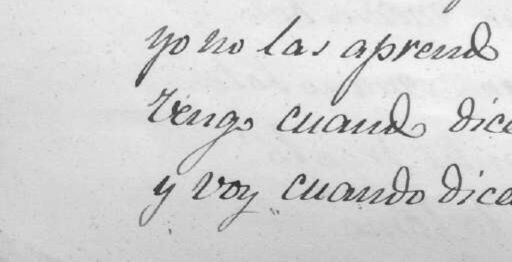 yo no las aprendo
vengo cuando dice
y voy cuando dice